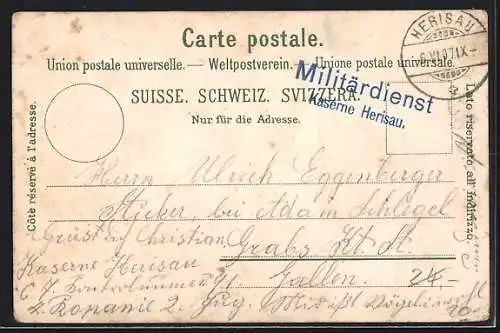 Carte postale.
HERISAU
Union postale universelle. — Weltpostverein. — Unione postale universale.
Militärdienst
Kaserne Herisau.
SUISSE. SCHWEIZ. SVIZZERA.
Nur für die Adresse.
Côté réservé à l'adresse.
Lato riservato all' indirizzo.
Herrn Ulrich Eggenberger
Sticker, bei Adam Schlegel
Gruss von Christian
Grabs Kt. St.
Kaserne Herisau
Gallen.
2. Zug.